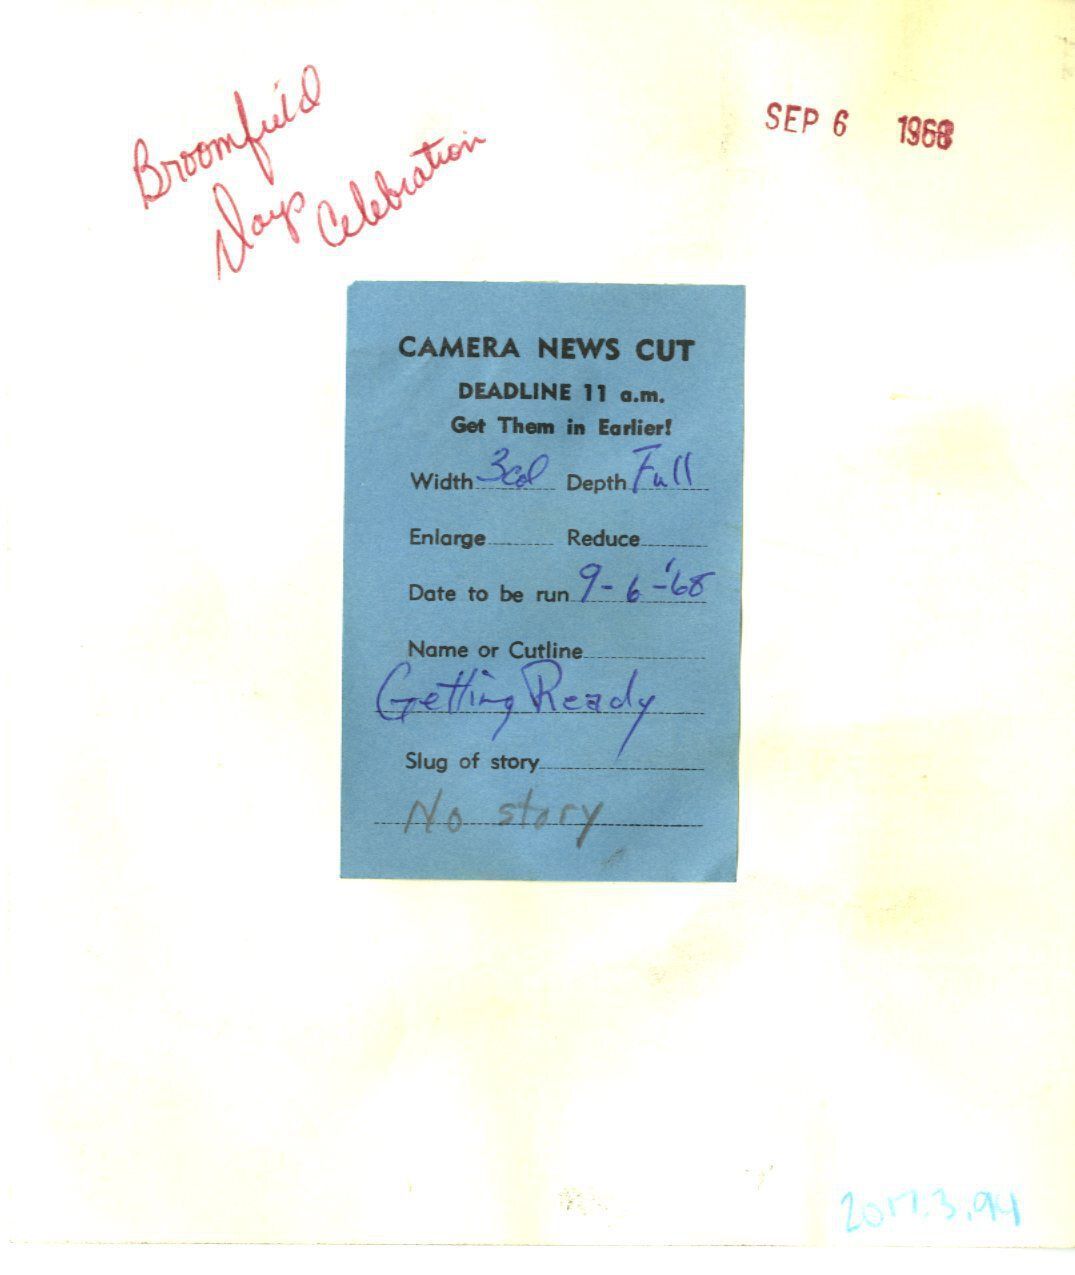 Broomfield
Days Celebration
SEP 6 1968
CAMERA NEWS CUT
DEADLINE 11 a.m.
Get Them in Earlier!
Width 3col Depth Full
Enlarge Reduce
Date to be run 9-6-'68
Name or Cutline
Getting Ready
Slug of story
No story
2017.3.94